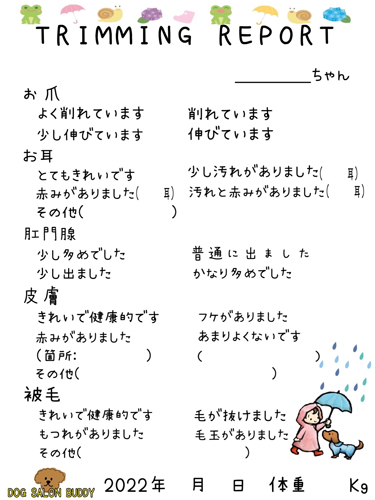 TRIMMING REPORT
__________ちゃん
お爪
よく削れています 削れています
少し伸びています 伸びています
お耳
とてもきれいです 少し汚れがありました( 耳)
赤みがありました( 耳) 汚れと赤みがありました( 耳)
その他( )
肛門腺
少し多めでした 普通に出ました
少し出ました かなり多めでした
皮膚
きれいで健康的です フケがありました
赤みがありました あまりよくないです
(箇所: ) ( )
その他( )
被毛
きれいで健康的です 毛が抜けました
もつれがありました 毛玉がありました
その他( )
DOG SALON BUDDY 2022年 月 日 体重 Kg